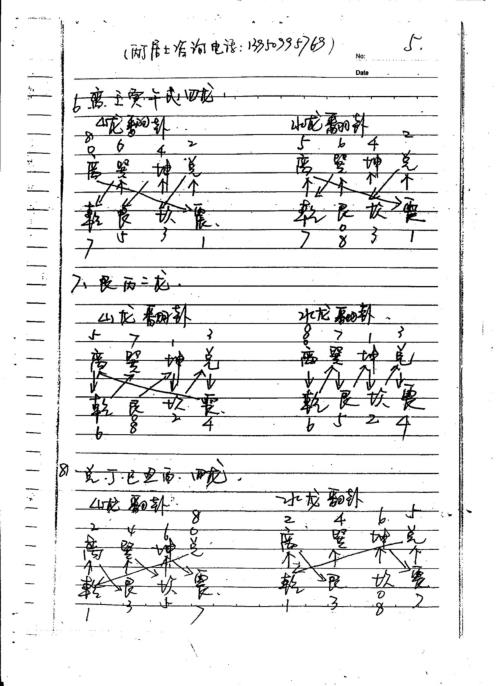 (丙居士咨询电话:13950995769)
No:
5.
Date
6. 离.壬寅午戌.四龙.
山龙翻卦 水龙翻卦
8 6 4 2 5 6 4 2
离 巽 坤 兑 离 巽 坤 兑
乾 艮 坎 震. 乾 艮 坎 震
7 5 3 1 7 8 3 1
7、艮丙二龙.
山龙翻卦 水龙翻卦.
5 7 1 3 8 7 1 3
离 巽 坤 兑 离 巽 坤 兑
乾 艮 坎 震. 乾 艮 坎 震
6 8 2 4 6 5 2 4
8) 兑.丁.巳丑酉.四龙.
山龙翻卦 水龙翻卦
2 4 6 8 2 4 6 5
离 巽 坤 兑 离 巽 坤 兑
乾 艮 坎 震 乾 艮 坎 震
1 3 5 7 1 3 8 7